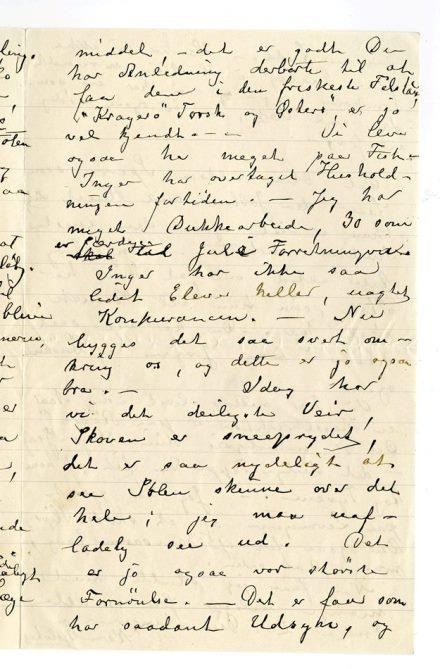 middel, – det er godt Du
har Anledning derborte til at
faa dem i den friskeste Tilstand,
"Kragerø" Torsk og Østers, er jo
vel kjendt. – – Vi leve
ogsaa her meget paa Fisk. –
Inger har overtaget Hushold-
ningen fortiden. – Jeg har
meget Dukkearbeide, 30 som
er færdige til Jule Forretningerne
Inger har ikke saa
lidet Elever heller, uagtet
Konkurancen. – Nu
bygges det saa svert om-
kring os, og dette er jo ogsaa
bra. – Idag har
vi det deiligste Veir,
Skoven er sneeprydet,
det er saa nydeligt at
see Solen skinne over det
hele; jeg maa uaf-
ladelig see ud. Det
er jo ogsaa vor største
Fornöielse. – Det er faa som
har saadant Udsyn, og